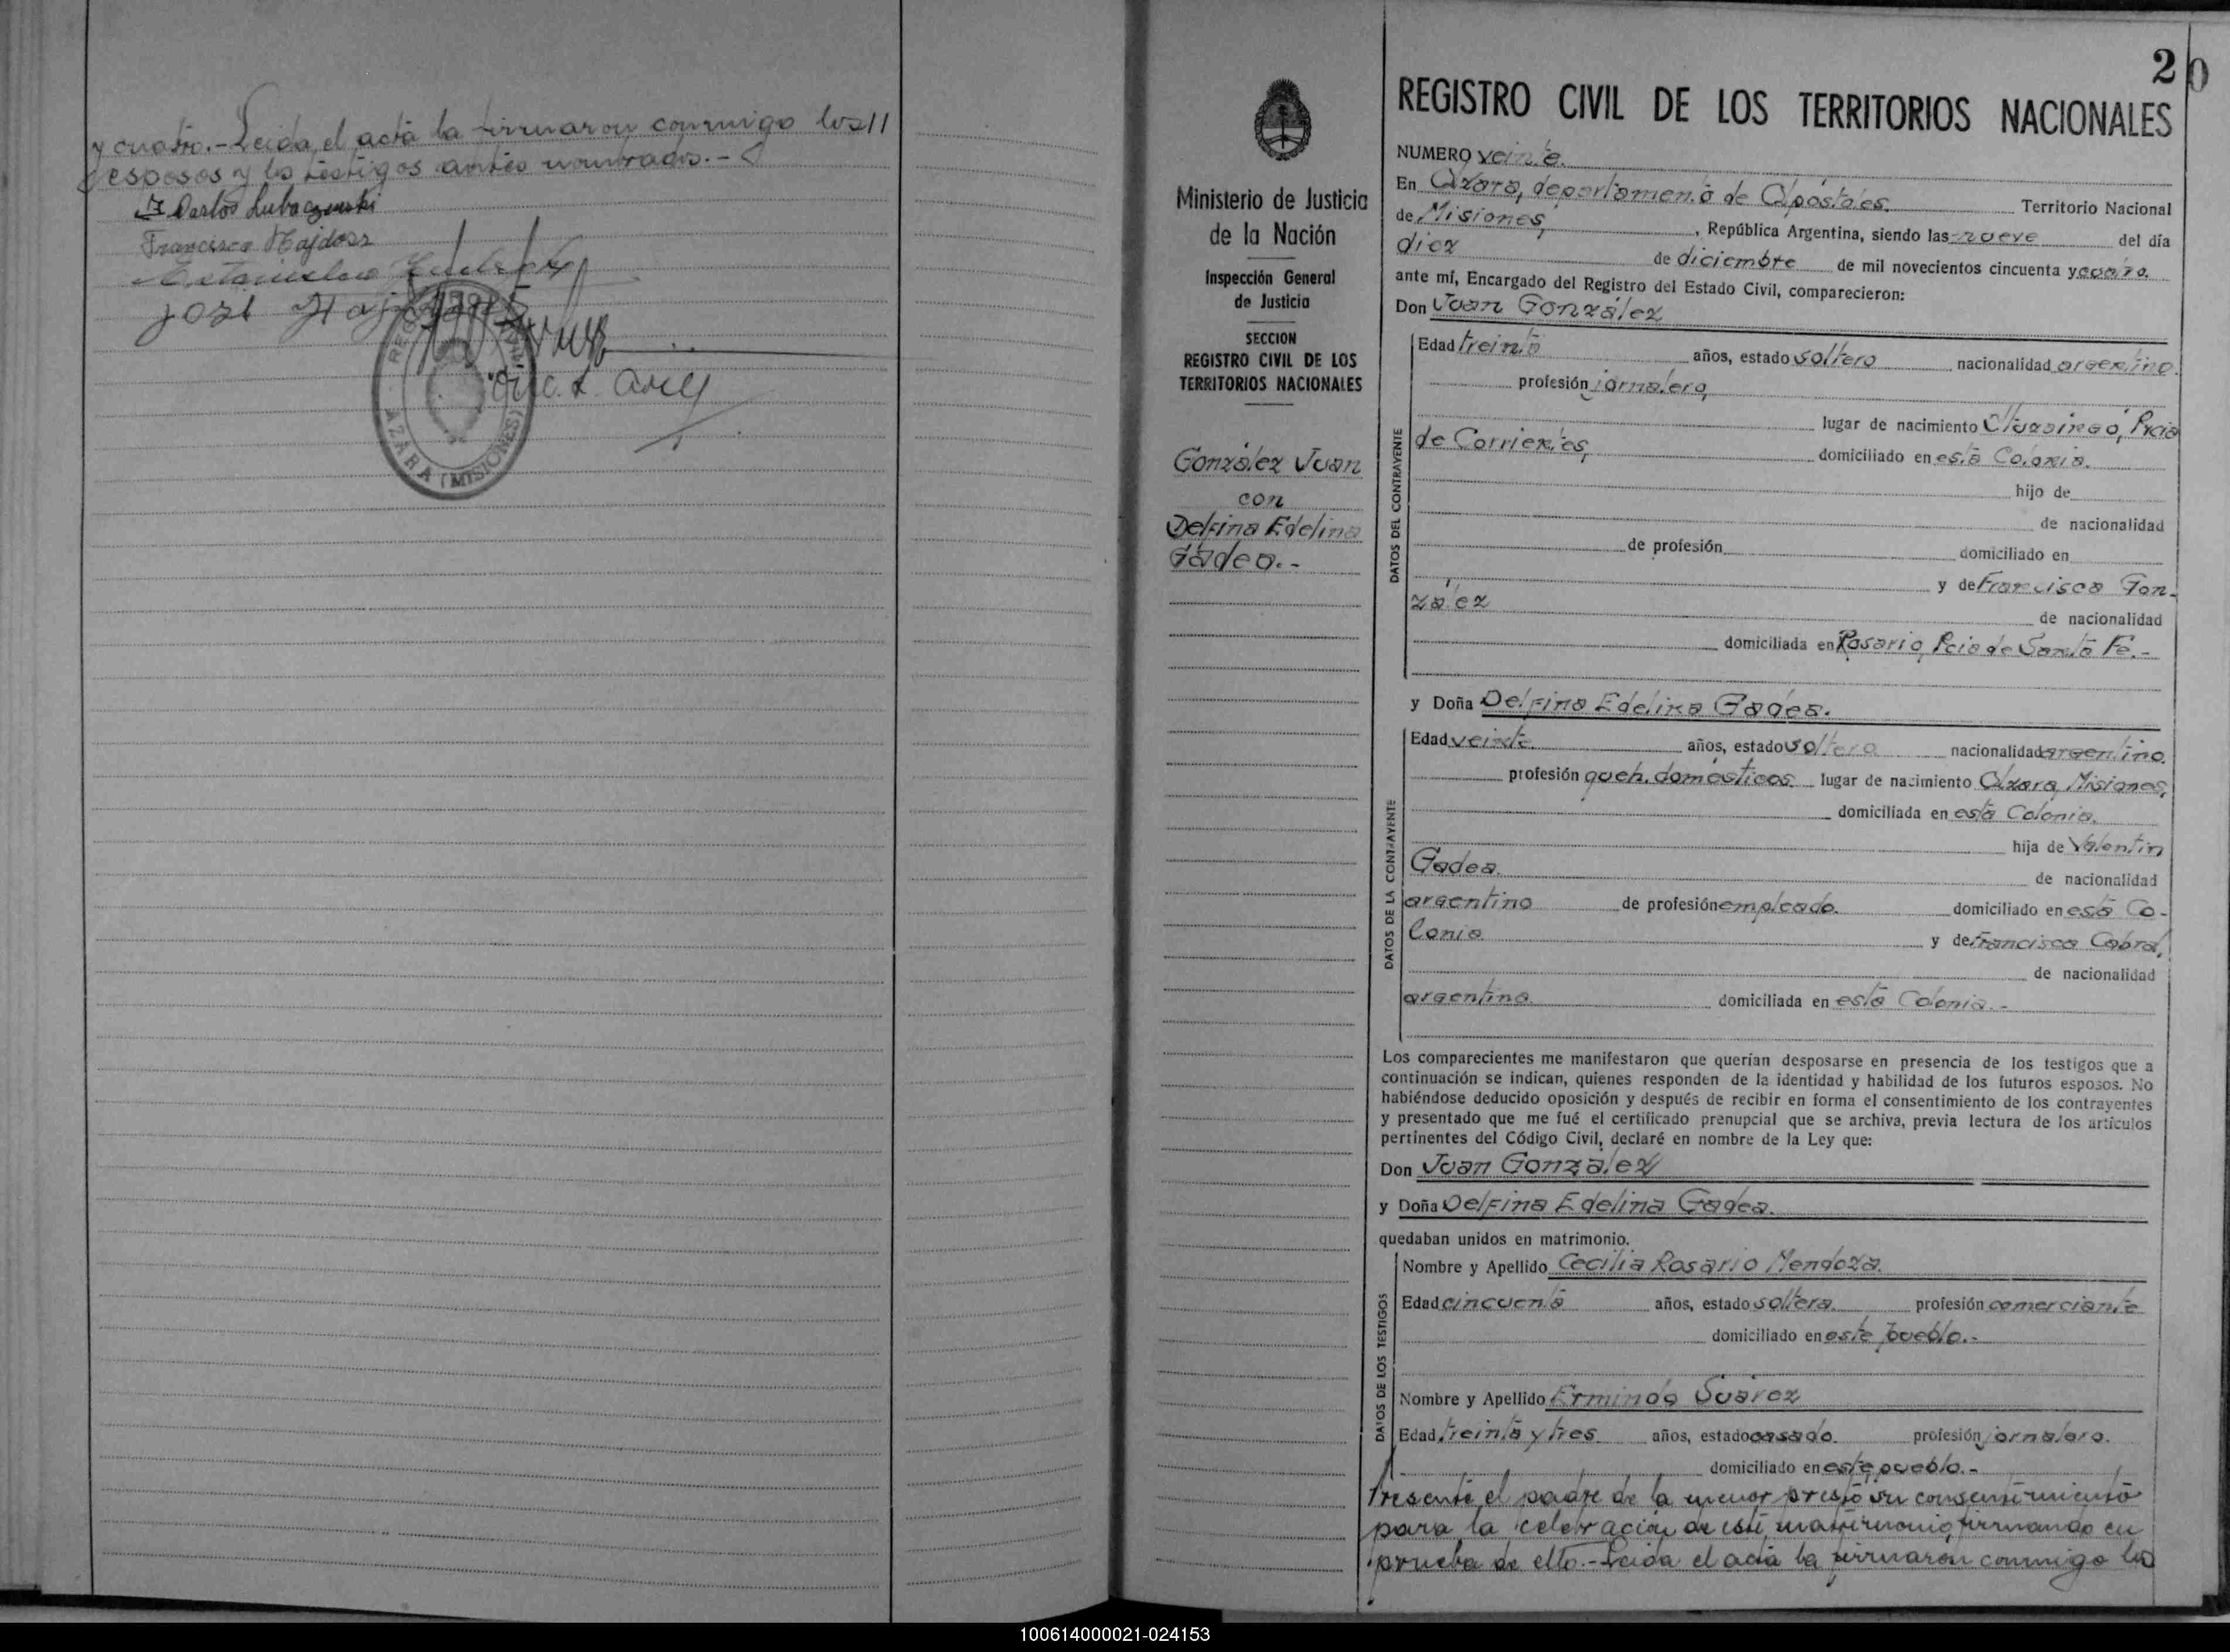 y cuatro.- Leida el acta la firmaron conmigo los//
esposos y los testigos antes nombrados.-
Carlos Lubaczewski
Francisca Hajdasz
José Hajdasz
AZARA (MISIONES)
20
REGISTRO CIVIL DE LOS TERRITORIOS NACIONALES
Ministerio de Justicia
de la Nación
Inspección General
de Justicia
SECCION
REGISTRO CIVIL DE LOS
TERRITORIOS NACIONALES
González Juan
con
Delfina Edelina
Gadea.-
NUMERO veinte.
En Azara, departamento de Apóstoles, Territorio Nacional
de Misiones, , República Argentina, siendo las nueve del día
diez de diciembre de mil novecientos cincuenta y cuatro.
ante mí, Encargado del Registro del Estado Civil, comparecieron:
Don Juan González
DATOS DEL CONTRAYENTE
Edad treinta años, estado soltero nacionalidad argentino.
profesión jornalero,
lugar de nacimiento Ituzaingó, Pcia
de Corrientes, domiciliado en esta Colonia.
hijo de
de nacionalidad
de profesión domiciliado en
y de Francisca Gon-
zález
de nacionalidad
domiciliada en Rosario, Pcia de Santa Fe.-
y Doña Delfina Edelina Gadea.
DATOS DE LA CONTRAYENTE
Edad veinte años, estado soltera nacionalidad argentina.
profesión queh. domésticos lugar de nacimiento Azara, Misiones,
domiciliada en esta Colonia.
hija de Valentín
Gadea. de nacionalidad
argentino de profesión empleado. domiciliado en esta Co-
lonia y de Francisca Cabral,
de nacionalidad
argentina domiciliada en esta Colonia.-
Los comparecientes me manifestaron que querían desposarse en presencia de los testigos que a
continuación se indican, quienes responden de la identidad y habilidad de los futuros esposos. No
habiéndose deducido oposición y después de recibir en forma el consentimiento de los contrayentes
y presentado que me fué el certificado prenupcial que se archiva, previa lectura de los artículos
pertinentes del Código Civil, declaré en nombre de la Ley que:
Don Juan González
y Doña Delfina Edelina Gadea.
quedaban unidos en matrimonio.
DATOS DE LOS TESTIGOS
Nombre y Apellido Cecilia Rosario Mendoza.
Edad cincuenta años, estado soltera. profesión comerciante
domiciliado en este pueblo.-
Nombre y Apellido Ermindo Suárez
Edad treinta y tres años, estado casado. profesión jornalero.
domiciliado en este pueblo.-
Presente el padre de la menor prestó su consentimiento
para la celebración de este matrimonio, firmando en
prueba de ello.- Leida el acta la firmaron conmigo los
100614000021-024153